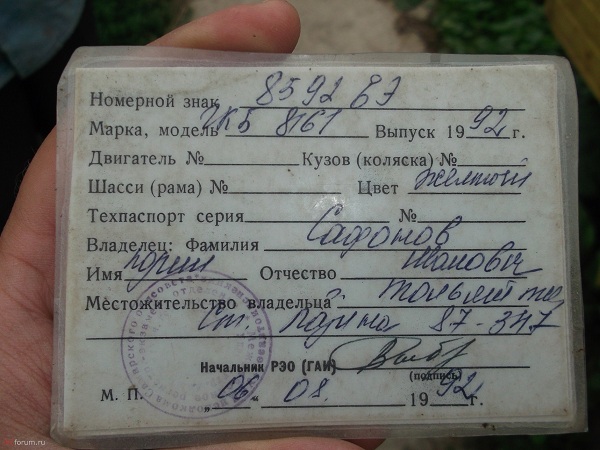 Номерной знак 8592 ЕЭ
Марка, модель ГКБ 8161 Выпуск 1992 г.
Двигатель № Кузов (коляска) №
Шасси (рама) № Цвет желтый
Техпаспорт серия №
Владелец: Фамилия Сафонов
Имя Юрий Отчество
Местожительство владельца: Тольятти
Ст. Разина 87-347
Начальник РЭО (ГАИ)
(подпись)
М. П. „06“ 08. 1992 г.
forum.ru